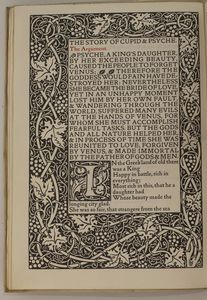 THE STORY OF CUPID & PSYCHE.
The Argument.
PSYCHE, A KING'S DAUGHTER,
BY HER EXCEEDING BEAUTY,
CAUSED THE PEOPLE TO FORGET
VENUS; THEREFORE THE
GODDESS WOULD FAIN HAVE DE-
STROYED HER: NEVERTHELESS
SHE BECAME THE BRIDE OF LOVE,
YET IN AN UNHAPPY MOMENT
LOST HIM BY HER OWN FAULT,
& WANDERING THROUGH THE
WORLD, SUFFERED MANY EVILS
AT THE HANDS OF VENUS, FOR
WHOM SHE MUST ACCOMPLISH
FEARFUL TASKS. BUT THE GODS
AND ALL NATURE HELPED HER,
AND IN PROCESS OF TIME SHE WAS
REUNITED TO LOVE, FORGIVEN
BY VENUS, & MADE IMMORTAL
BY THE FATHER OF GODS & MEN.
In the Greek land of old there
was a King
Happy in battle, rich in
everything;
Most rich in this, that he a
daughter had
Whose beauty made the
longing city glad.
She was so fair, that strangers from the sea